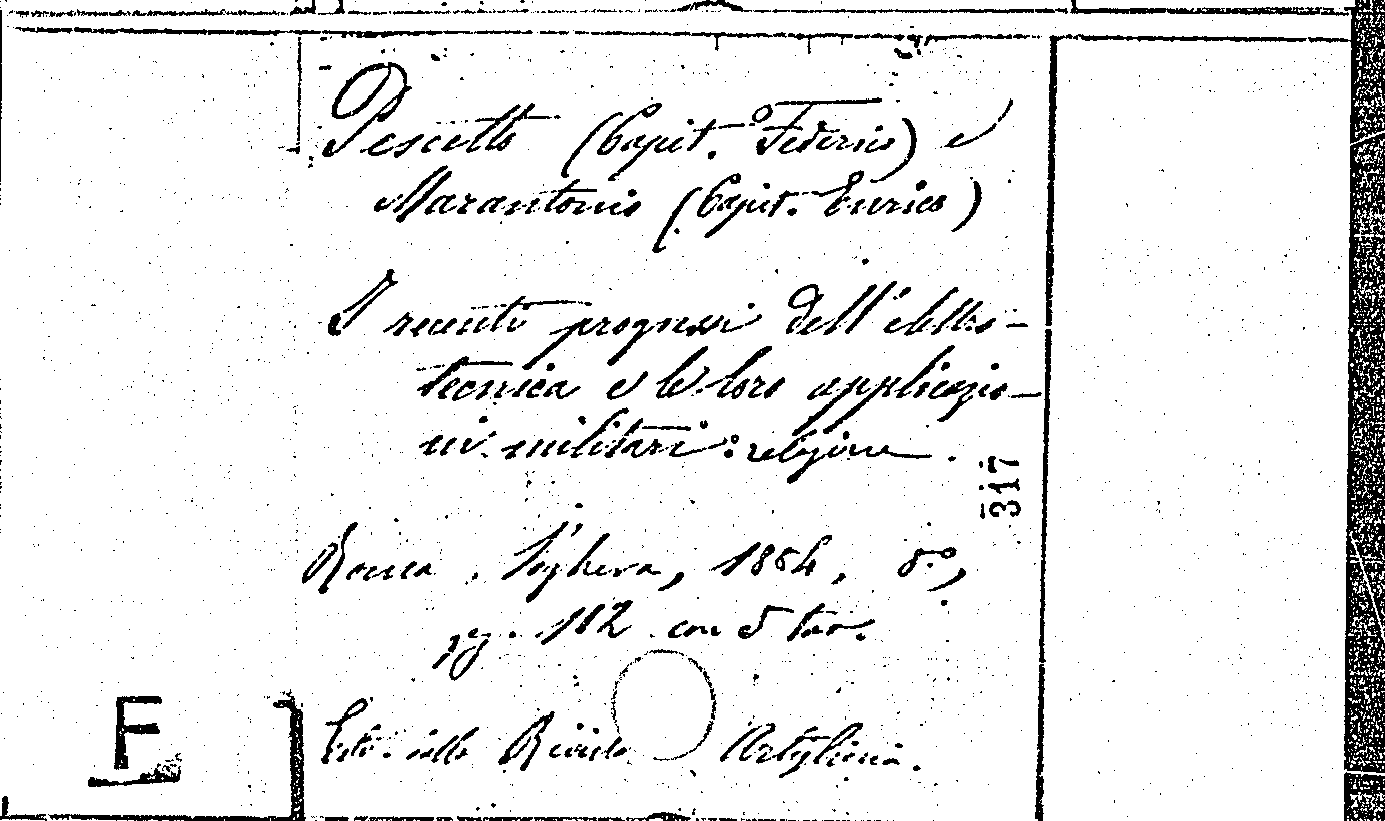 Pescetto (Capit. Federico) e
Marantonio (Capit. Enrico)
I recenti progressi dell'elettro-
tecnica e le loro applicazio-
ni militari: relazione.
317
Roma, Voghera, 1884, 8.º,
pag. 112 con 5 tav.
F
Estr. dalla Rivista Artiglieria.